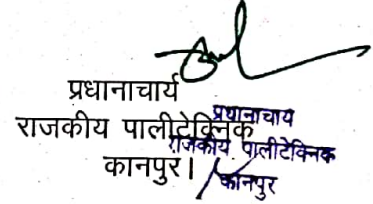 प्रधानाचार्य
राजकीय पालीटेक्निक
कानपुर।
प्रधानाचाय
राजकीय पालीटेक्निक
कानपुर